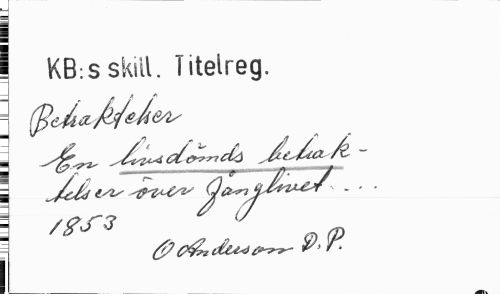 KB:s skill. Titelreg.
Betraktelser
En livsdömds betrak-
telser över fånglivet....
1853
O Anderson D.P.